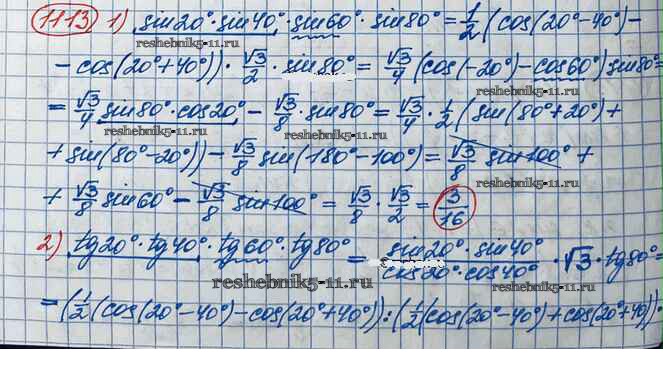 1113 1) sin20°·sin40°·sin60°·sin80° = 1/2 (cos(20°-40°)-
reshebnik5-11.ru
- cos(20°+40°))· √3/2 · sin80° = √3/4 (cos(-20°)-cos60°)sin80°=
reshebnik5-11.ru
= √3/4 sin80°·cos20° - √3/8 · sin80° = √3/4 · 1/2 (sin(80°+20°)+
reshebnik5-11.ru
+ sin(80°-20°)) - √3/8 sin(180°-100°) = √3/8 sin100° +
reshebnik5-11.ru
+ √3/8 sin60° - √3/8 sin100° = √3/8 · √3/2 = 3/16
reshebnik5-11.ru
2) tg20°·tg40°·tg60°·tg80° = sin20°·sin40°/cos20°·cos40° · √3 · tg80°=
reshebnik5-11.ru
reshebnik5-11.ru
= (1/2(cos(20°-40°)-cos(20°+40°)):(1/2(cos(20°-40°)+cos(20°+40))·